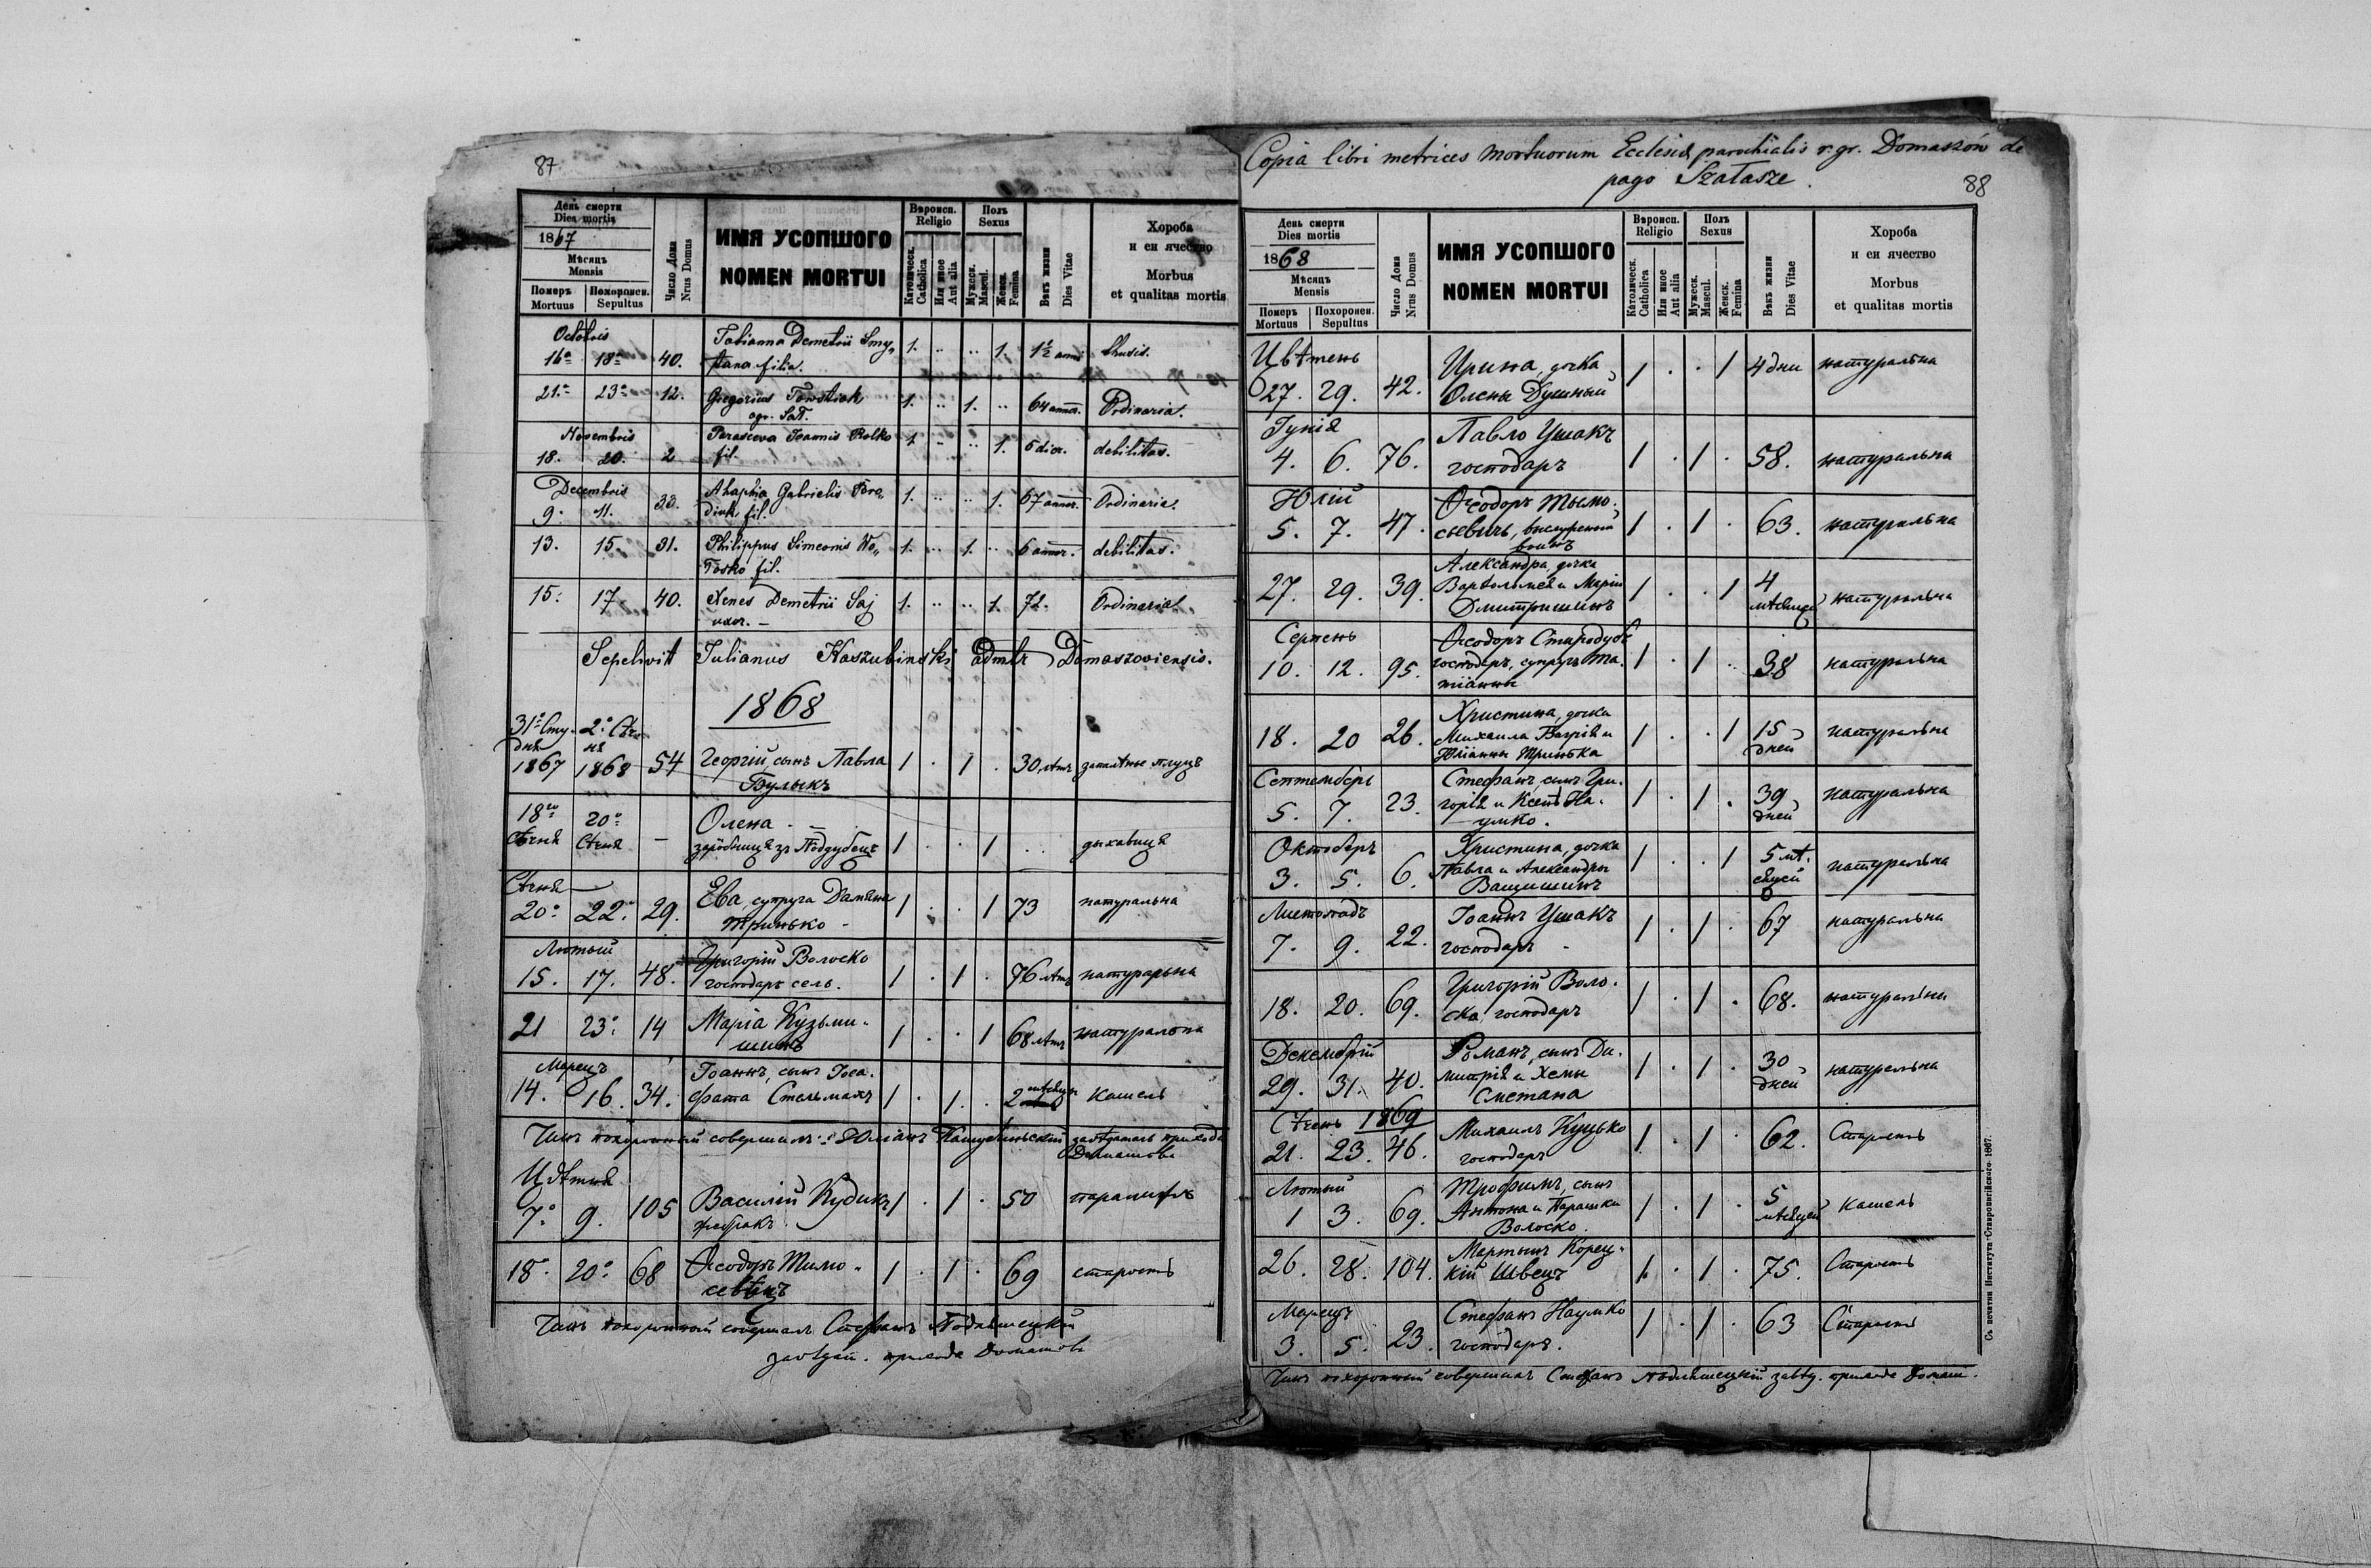 87
День смерти
Dies mortis
1867
Мѣсяцъ
Mensis
Померъ Похоронен.
Mortuus Sepultus
Число Дома
Nrus Domus
ИМЯ УСОПШОГО
NOMEN MORTUI
Вѣроисп.
Religio
Католическ.
Catholica
Или иное
Aut alia
Полъ
Sexus
Мужеск.
Mascul.
Женск.
Femina
Вѣкъ жизни
Dies Vitae
Хороба
и еи ячество
Morbus
et qualitas mortis
Octobris
16a 18a 40. Tatianna Demetrii Smy„ 1. .. .. 1. 1½ anni thusis.
tana filia.
21. 23. 12. Gregorius 1. .. 1. .. 64 annor. Ordinaria.
agr.
Novembris
18. 20. 2 Parasceva Joannis Rolko 1. .. .. 1. 6 dier. debilitas.
fil.
Decembris
9. 11. 33. Ahaphia Gabrielis 1. .. .. 1. 67 annor. Ordinaria.
fil.
13. 15. 31. Philippus Simeonis Wo„ 1. .. 1. .. 6 annor. debilitas.
łosko fil.
15. 17. 40. Xenes Demetrii Saj 1. .. .. 1. 72. Ordinaria.
uxor.
Sepelivit Julianus Kaszubinski admtr Domaszoviensis.
1868
31 Сту- 2 Сѣч
дня ня
1867 1868 54 Георгій, сынъ Павла 1 . 1 . 30 лѣтъ запалѣнье плуцъ
Булыкъ
18го 20о Олена
Сѣчня Сѣчня — зарôбница зъ Пôддубецъ 1 . . 1 .. дыхавиця
Сѣчня
20. 22. 29. Ева, супруга Даміяна 1 . . 1 73 натуральна
Тринько
Лютый
15. 17. 48. Григорій Волоско 1 . 1 . 76 лѣтъ натуральна
господарь сель.
21 23. 14 Марія Кузьми- 1 . . 1 68 лѣтъ натуральна
шинъ
Марецъ
14. 16. 34. Іоаннъ, сынъ Іоса- 1 . 1. . 2 мѣсяцы Кашель
фата Стельмахъ
Чинъ похоронный совершилъ: Юліанъ Кашубиньскій завѣдатель прихода
Домашова
Цвѣтня
7. 9. 105 Василій Кудикъ 1 . 1 . 50
жебракъ
18. 20. 68 Ѳеодоръ Тимо- 1 . 1 . 69 старость
Чинъ похоронный совершалъ Стефанъ Подляшецкій
завѣдат. прихода Домашова
Copia libri metrices mortuorum Ecclesiæ parochialis r. gr. Domaszów de
pago Szałasze.
88
День смерти
Dies mortis
1868
Мѣсяцъ
Mensis
Померъ Похоронен.
Mortuus Sepultus
Число Дома
Nrus Domus
ИМЯ УСОПШОГО
NOMEN MORTUI
Вѣроисп.
Religio
Католическ.
Catholica
Или иное
Aut alia
Полъ
Sexus
Мужеск.
Mascul.
Женск.
Femina
Вѣкъ жизни
Dies Vitae
Хороба
и еи ячество
Morbus
et qualitas mortis
Цвѣтень
27. 29. 42. Ирина, дочка 1 . . 1 4 дни натуральна
Олены Душный
Іунія
4. 6. 76. Павло Ушакъ 1 . 1 . 58. натуральна
господарь
Юлій
5. 7. 47. Ѳеодоръ Тымо- 1 . 1 . 63. натуральна
севичъ,
27. 29. 39. Александра, дочка 1 . . 1 4 мѣсяцей натуральна
Варѳоломея и Маріи
Дмитришинъ
Серпень
10. 12. 95. Ѳеодоръ Стародубъ 1 . 1 .. 38 натуральна
господарь, супругъ Та-
тіанны
18. 20 26. Христина, дочка 1 . . 1 15 дней натуральна
Михаила Багрія и
Юліанны Тринька
Септемберъ
5. 7. 23. Стефанъ, сынъ Гри- 1 . 1 . 39 дней натуральна
горія и Ксенѣ На-
умко.
Октоберъ
3. 5. 6. Христина, дочка 1 . . 1 5 мѣ- натуральна
Павла и Александры сяцей
Ващишинъ
Листопадъ
7. 9. 22. Іоаннъ Ушакъ 1 . 1 . 67 натуральна
господарь
18. 20. 69. Григорій Воло- 1 . 1 . 68. натуральна
ско, господарь
Декемврій
29. 31. 40. Романъ, сынъ Ди- 1 . 1 . 30 дней натуральна
митрія и Хемы
Сметана
Сѣчень 1869
21. 23. 46. Михаилъ Куцько 1 . 1 . 62. Старость
господарь
Лютый
1 3. 69. Трофимъ, сынъ 1 . 1 . 5 мѣсяцей Кашель
Антона и Парашки
Волоско.
26. 28. 104. Мартынъ Корец- 1. . 1 . 75. Старость
кій Швецъ
Марецъ
3. 5. 23. Стефанъ Наумко 1 . 1 . 63 Старость
господарь.
Чинъ похоронный совершилъ Стефанъ Подляшецкій завѣд. прихода Домаш.
Съ печатни Института Ставропигійского 1867.